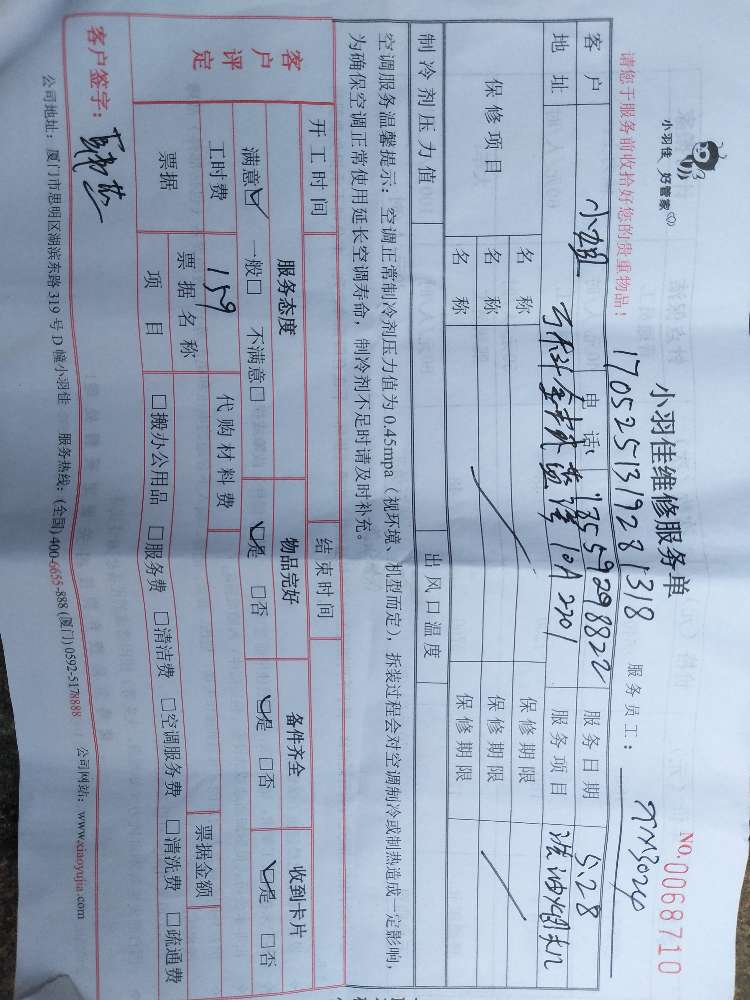 小羽佳 好管家
小羽佳维修服务单
NO.0068710
请您于服务前收拾好您的贵重物品！
1705251319281318
服务员工：
客户 小姐 电话 13559298822 服务日期 5.28
地址 10A2701 服务项目 洗油烟机
保修项目 名称 保修期限
名称 保修期限
名称 保修期限
制冷剂压力值 出风口温度
空调服务温馨提示：空调正常制冷剂压力值为 0.45mpa（视环境、机型而定），拆装过程会对空调制冷或制热造成一定影响，
为确保空调正常使用延长空调寿命，制冷剂不足时请及时补充。
开工时间 结束时间
客户评定 服务态度 物品完好 备件齐全 收到卡片
满意☑ 一般□ 不满意□ ☑是 □否 ☑是 □否 ☑是 □否
工时费 159 代购材料费
票据 票据名称 票据金额
项目 □搬办公用品 □服务费 □清洁费 □空调服务费 □清洗费 □疏通费
客户签字：
公司地址：厦门市思明区湖滨东路 319 号 D 幢小羽佳 服务热线：(全国) 400-6655-888 (厦门) 0592-5178888 公司网站：www.xiaoyujia.com